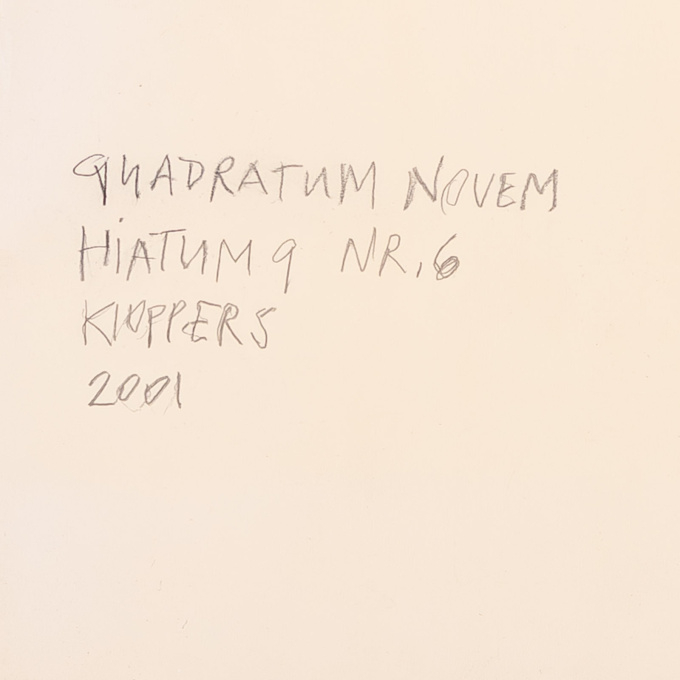 QUADRATUM NOVEM
HIATUM 9 NR. 6
KLOPPERS
2001